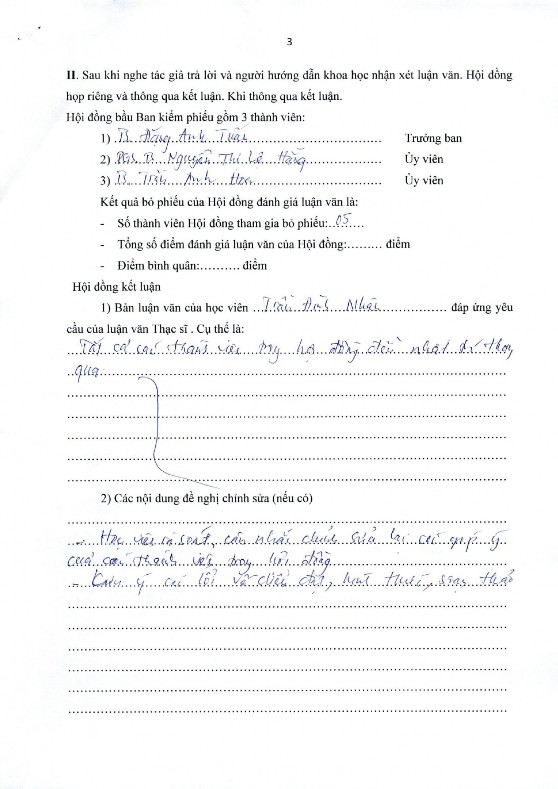 3
II. Sau khi nghe tác giả trả lời và người hướng dẫn khoa học nhận xét luận văn. Hội đồng
họp riêng và thông qua kết luận. Khi thông qua kết luận.
Hội đồng bầu Ban kiểm phiếu gồm 3 thành viên:
1) Đặng Anh Tuấn Trưởng ban
2) PGS. Nguyễn Thị Lê Hằng Ủy viên
3) Trần Anh Ủy viên
Kết quả bỏ phiếu của Hội đồng đánh giá luận văn là:
- Số thành viên Hội đồng tham gia bỏ phiếu:..05....
- Tổng số điểm đánh giá luận văn của Hội đồng:......... điểm
- Điểm bình quân:.......... điểm
Hội đồng kết luận
1) Bản luận văn của học viên Trần Anh đáp ứng yêu
cầu của luận văn Thạc sĩ . Cụ thể là:
Tất cả các thành viên trong hội đồng đều nhất trí thông
qua
2) Các nội dung đề nghị chỉnh sửa (nếu có)
- Học viên rà soát, cân nhắc chỉnh sửa lại các góp ý
của các thành viên trong hội đồng
- lưu ý các lỗi về diễn đạt, hình thức, soạn thảo